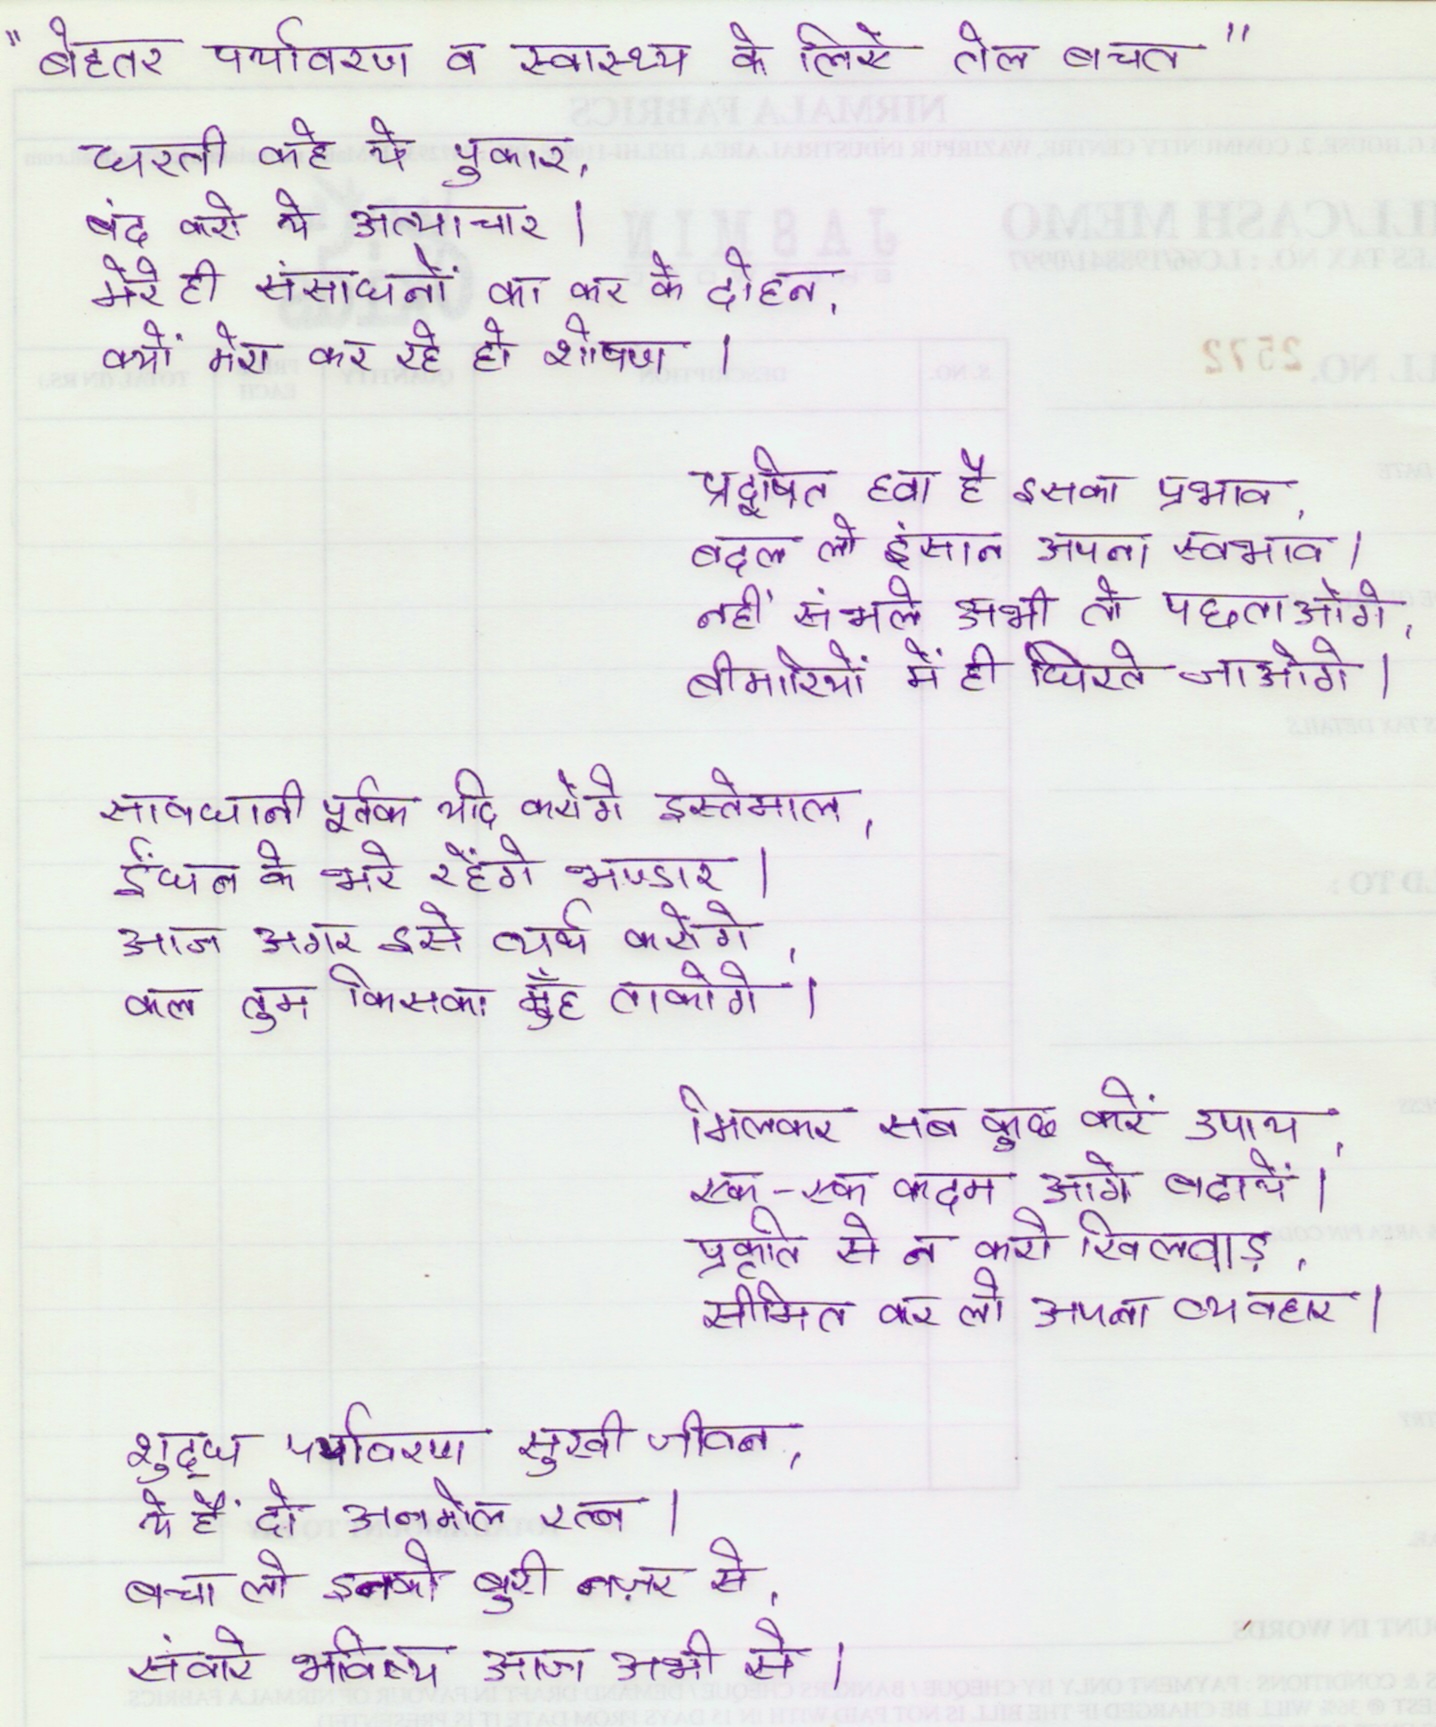 "बेहतर पर्यावरण व स्वास्थ्य के लिये तेल बचत"
धरती कहे ये पुकार,
बंद करो ये अत्याचार।
मेरे ही संसाधनों का कर के दोहन,
क्यों मेरा कर रहे हो शोषण।
प्रदूषित हवा है इसका प्रभाव,
बदल लो इंसान अपना स्वभाव।
नहीं संभले अभी तो पछताओगे,
बीमारियों में ही घिरते जाओगे।
सावधानी पूर्वक यदि करोगे इस्तेमाल,
ईंधन के भरे रहेंगे भण्डार।
आज अगर इसे व्यर्थ करोगे,
कल तुम किसका मुँह ताकोगे।
मिलकर सब कुछ करें उपाय,
एक-एक कदम आगे बढायें।
प्रकृति से न करो खिलवाड़,
सीमित कर लो अपना व्यवहार।
शुद्ध पर्यावरण सुखी जीवन,
ये हैं दो अनमोल रत्न।
बचा लो इनको बुरी नज़र से,
संवारे भविष्य आज अभी से।
NIRMALA FABRICS
JASMIN
BILL/CASH MEMO
2572
S. NO.
DESCRIPTION
QUANTITY